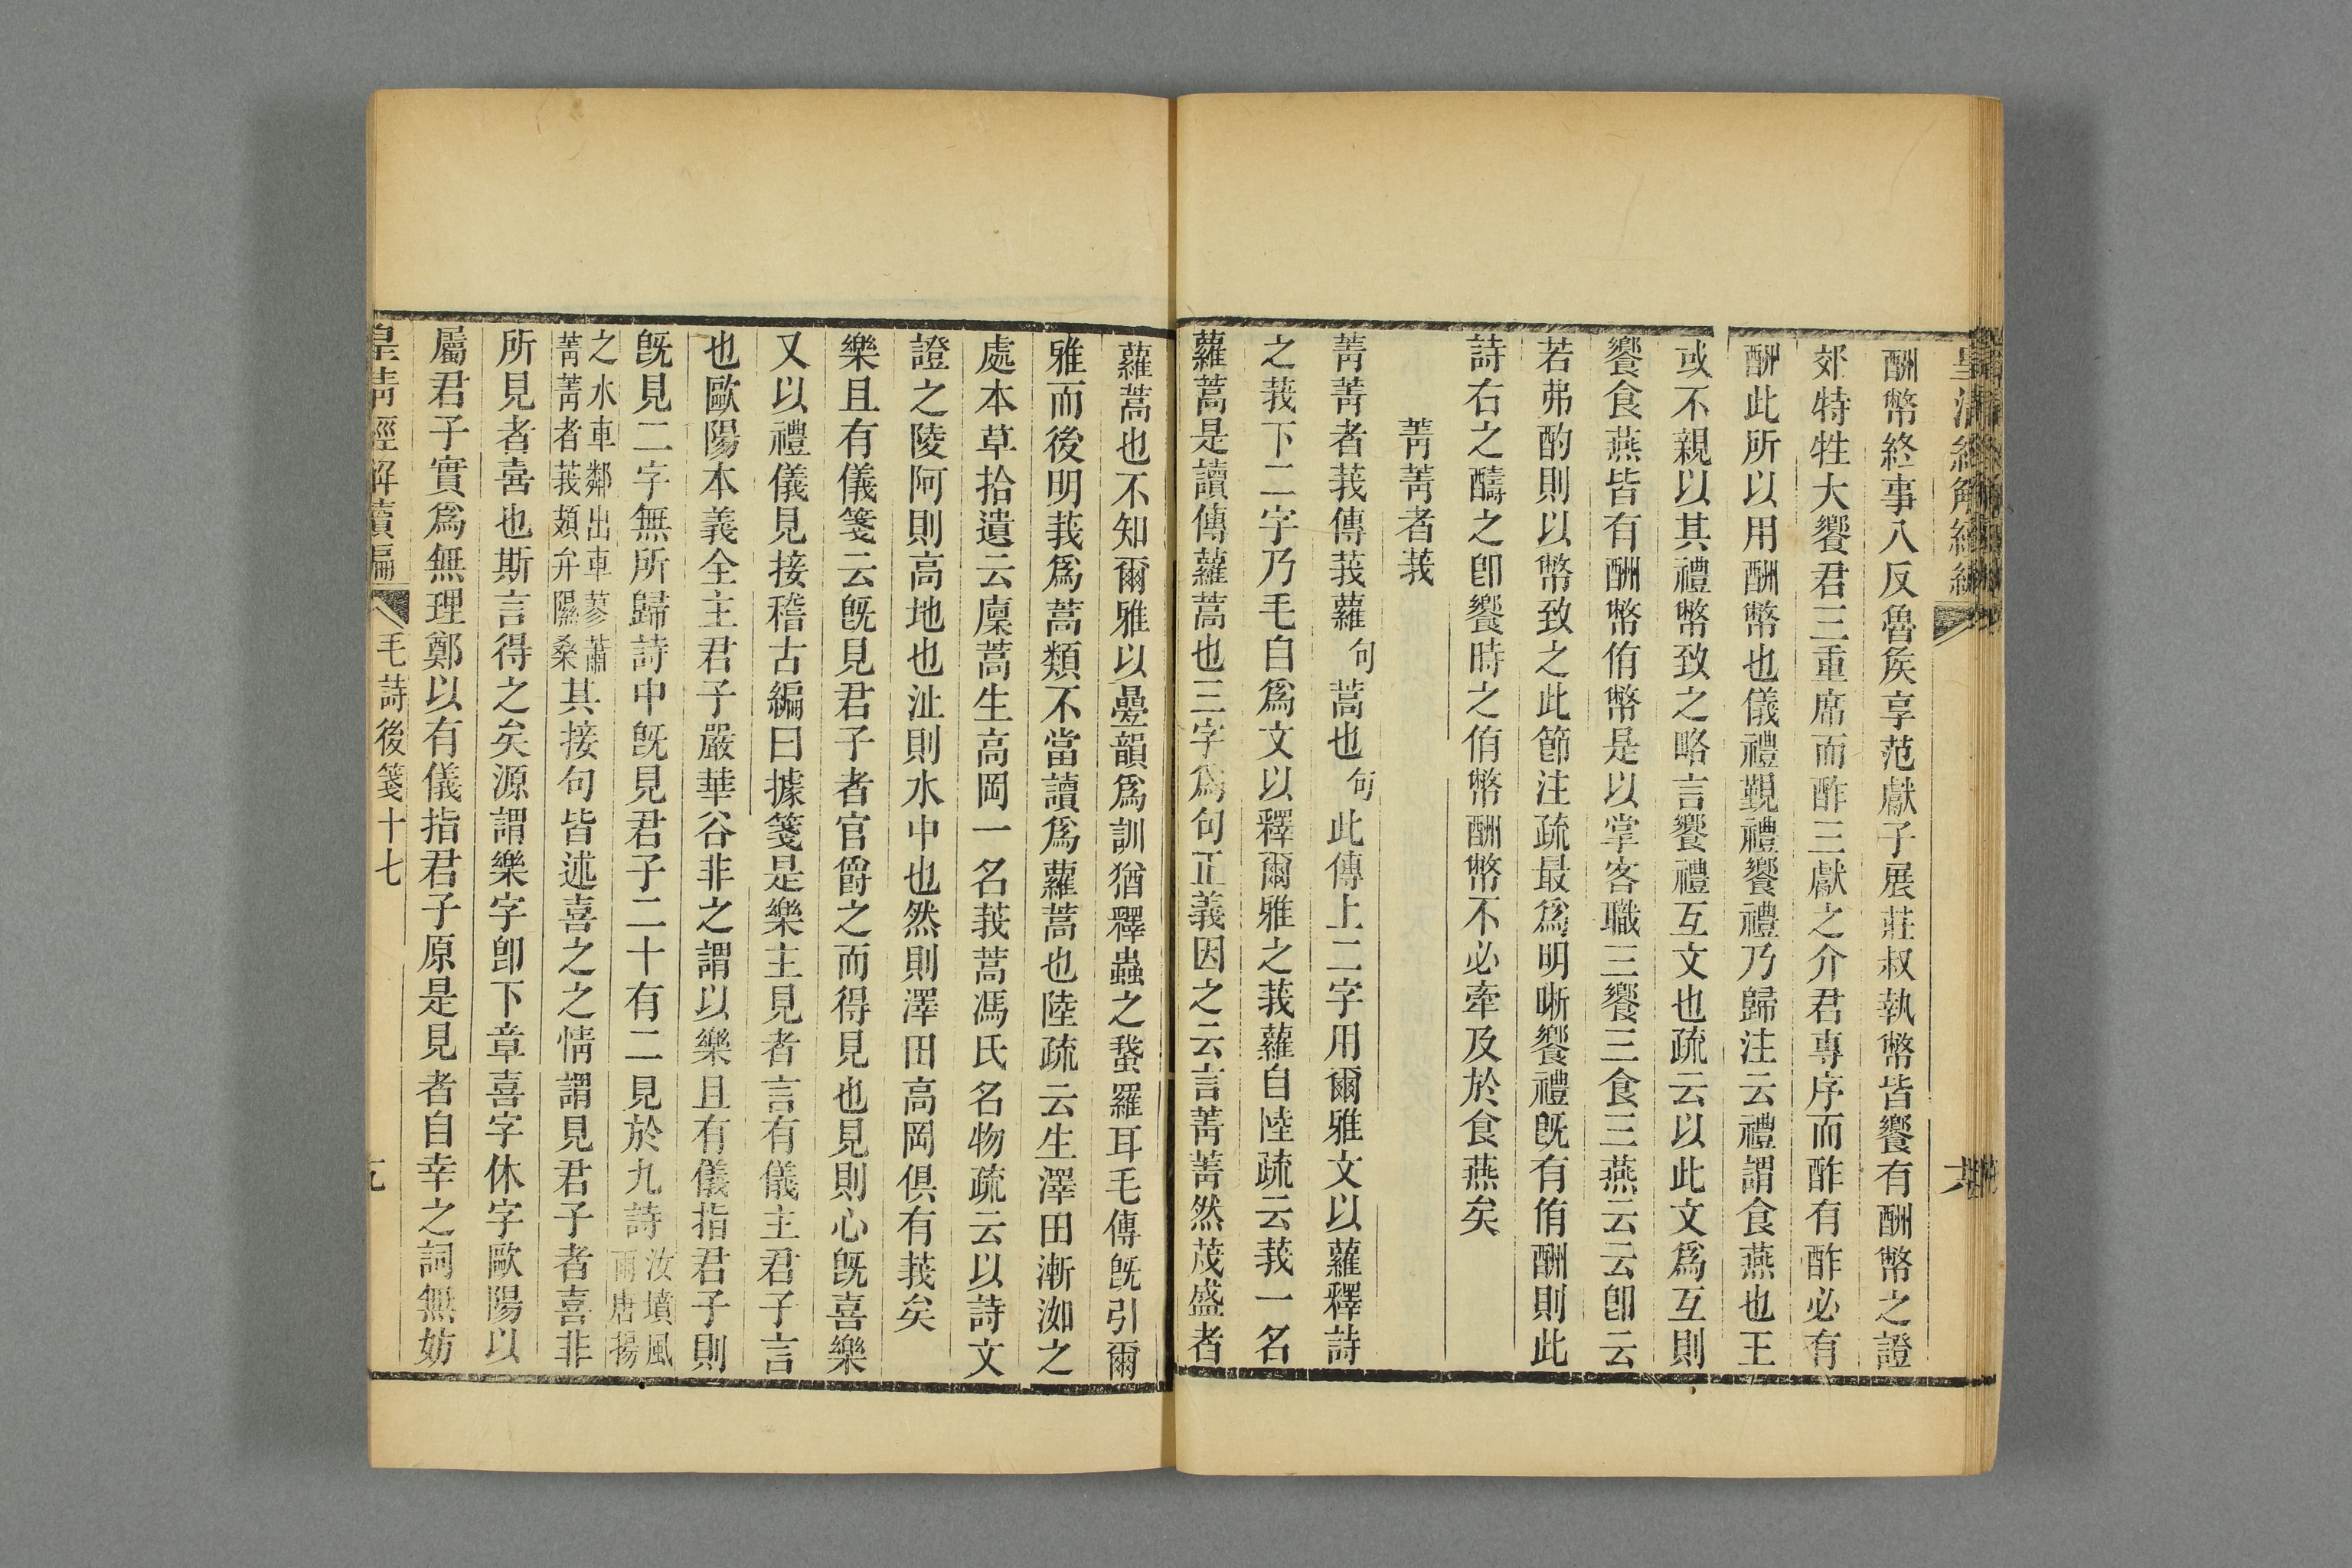 酬幣終事八反魯矦享范獻子展莊叔執幣皆饗有酬幣之證
郊特牲大饗君三重席而酢三獻之介君專序而酢有酢必有
酬此所以用酬幣也儀禮覲禮饗禮乃歸注云禮謂食燕也王
或不親以其禮幣致之略言饗禮互文也疏云以此文爲互則
饗食燕皆有酬幣侑幣是以掌客職三饗三食三燕云云卽云
若弗酌則以幣致之此節注疏最爲明晣饗禮旣有侑酬則此
詩右之醻之卽饗時之侑幣酬幣不必牽及於食燕矣
菁菁者莪
菁菁者莪傳莪蘿句蒿也句此傳上二字用爾雅文以蘿釋詩
之莪下二字乃毛自爲文以釋爾雅之莪蘿自陸疏云莪一名
蘿蒿是讀傳蘿蒿也三字爲句正義因之云言菁菁然茂盛者
蘿蒿也不知爾雅以曡韻爲訓猶釋蟲之蛾羅耳毛傳旣引爾
雅而後明莪爲蒿類不當讀爲蘿蒿也陸疏云生澤田漸洳之
處本草拾遺云廩蒿生高岡一名莪蒿馮氏名物疏云以詩文
證之陵阿則高地也沚則水中也然則澤田高岡俱有莪矣
樂且有儀箋云旣見君子者官爵之而得見也見則心旣喜樂
又以禮儀見接稽古編曰據箋是樂主見者言有儀主君子言
也歐陽本義全主君子嚴華谷非之謂以樂且有儀指君子則
旣見二字無所歸詩中旣見君子二十有二見於九詩汝墳風雨唐揚
之水車鄰出車蓼蕭菁菁者莪頍弁隰桑其接句皆述喜之之情謂見君子者喜非
所見者喜也斯言得之矣源謂樂字卽下章喜字休字歐陽以
屬君子實爲無理鄭以有儀指君子原是見者自幸之詞無妨
皇清經解續編 毛詩後箋十七